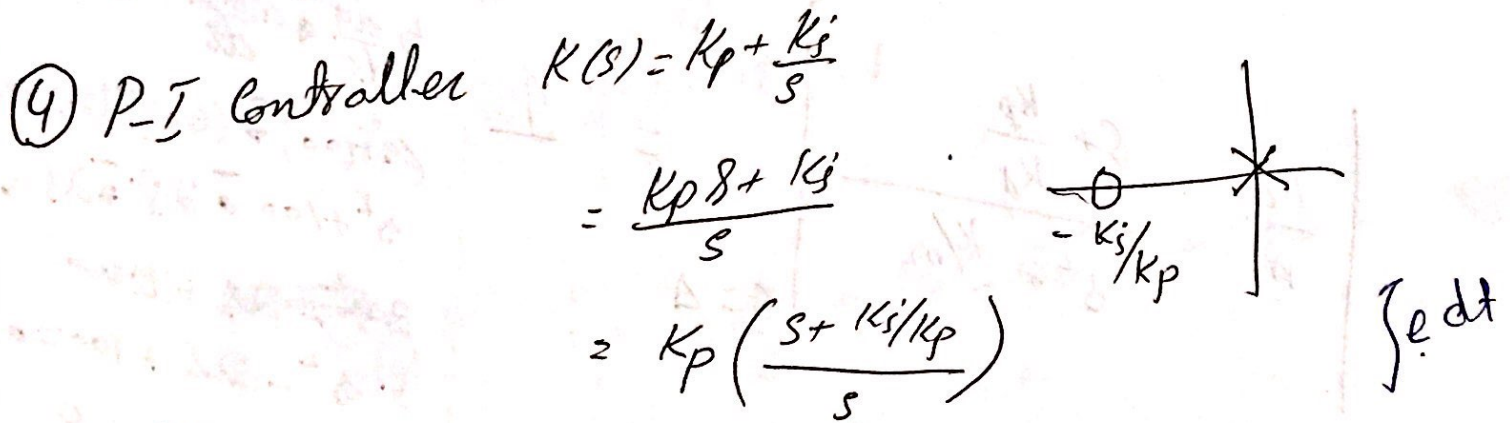 ④ P-I Controller K(s) = Kp + Ki/s
= (Kp s + Ki)/s
- Ki/Kp
= Kp ( (s + Ki/Kp)/s )
∫e dt